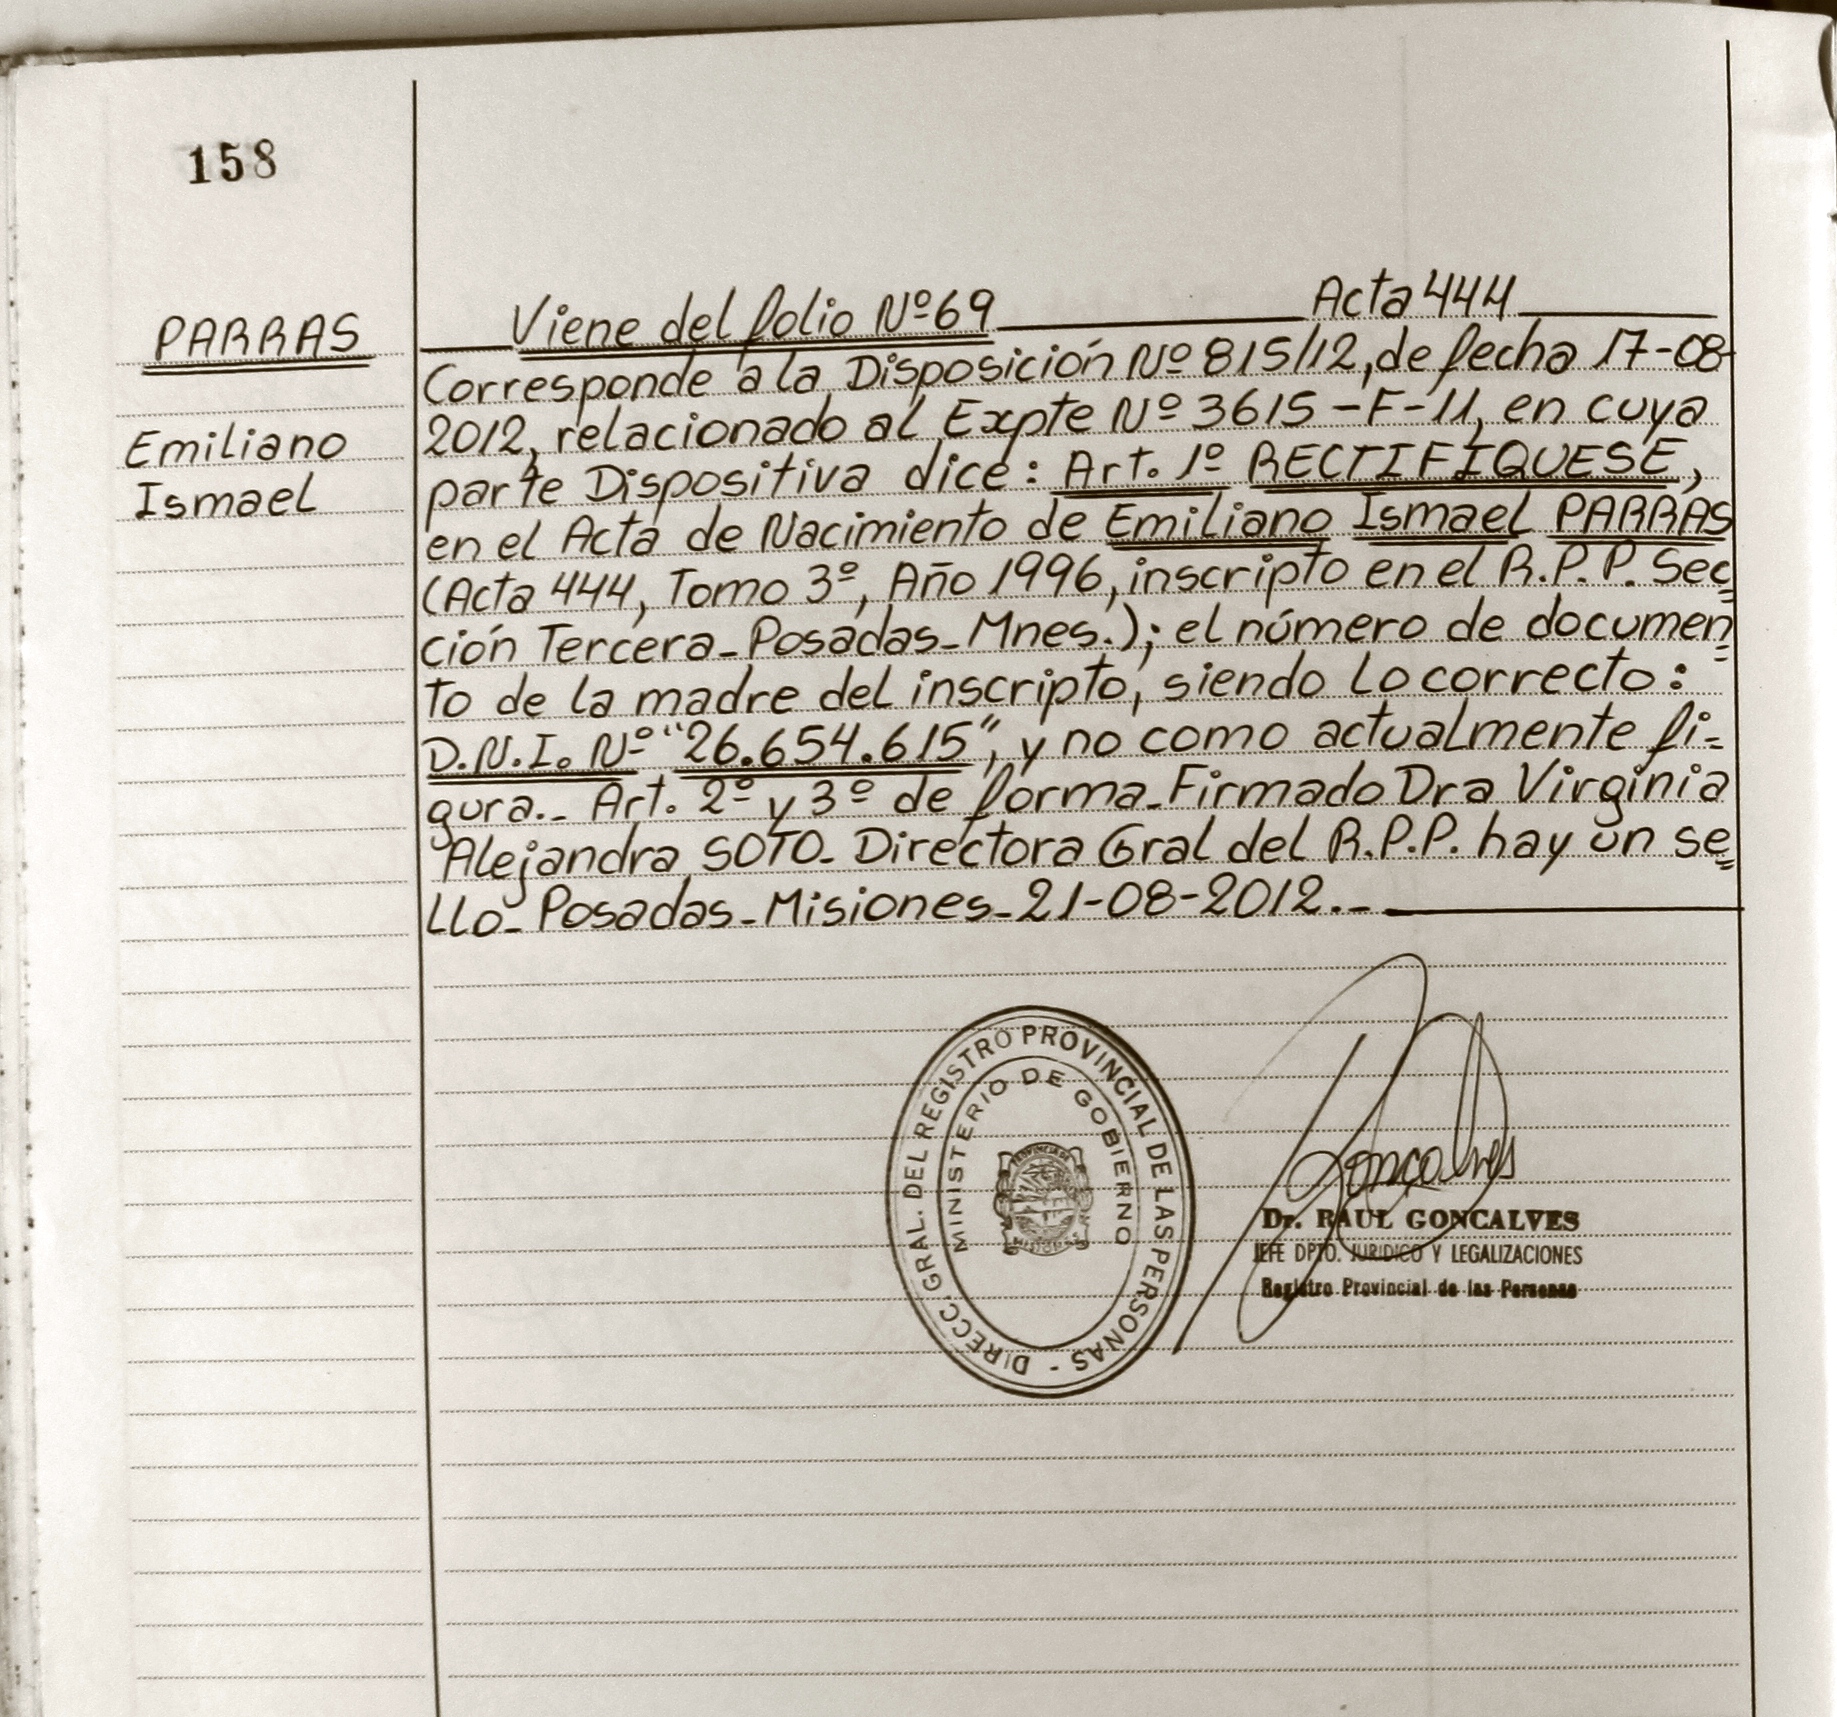 158
PARRAS
Emiliano
Ismael
Viene del folio Nº 69 Acta 444
Corresponde a la Disposición Nº 815/12, de fecha 17-08-
2012, relacionado al Expte Nº 3615-F-11, en cuya
parte Dispositiva dice: Art. 1º RECTIFIQUESE,
en el Acta de Nacimiento de Emiliano Ismael PARRAS
(Acta 444, Tomo 3º, Año 1996, inscripto en el R.P.P. Sec=
ción Tercera_Posadas_Mnes.); el número de documen=
to de la madre del inscripto, siendo lo correcto:
D.N.I. Nº "26.654.615", y no como actualmente fi=
gura._ Art. 2º y 3º de forma_Firmado Dra Virginia
Alejandra SOTO_ Directora Gral del R.P.P. hay un se=
llo_ Posadas_Misiones_21-08-2012._
DIRECC. GRAL. DEL REGISTRO PROVINCIAL DE LAS PERSONAS -
MINISTERIO DE GOBIERNO
PROVINCIA DE
MISIONES
Goncalves
Dr. RAUL GONCALVES
JEFE DPTO. JURIDICO Y LEGALIZACIONES
Registro Provincial de las Personas